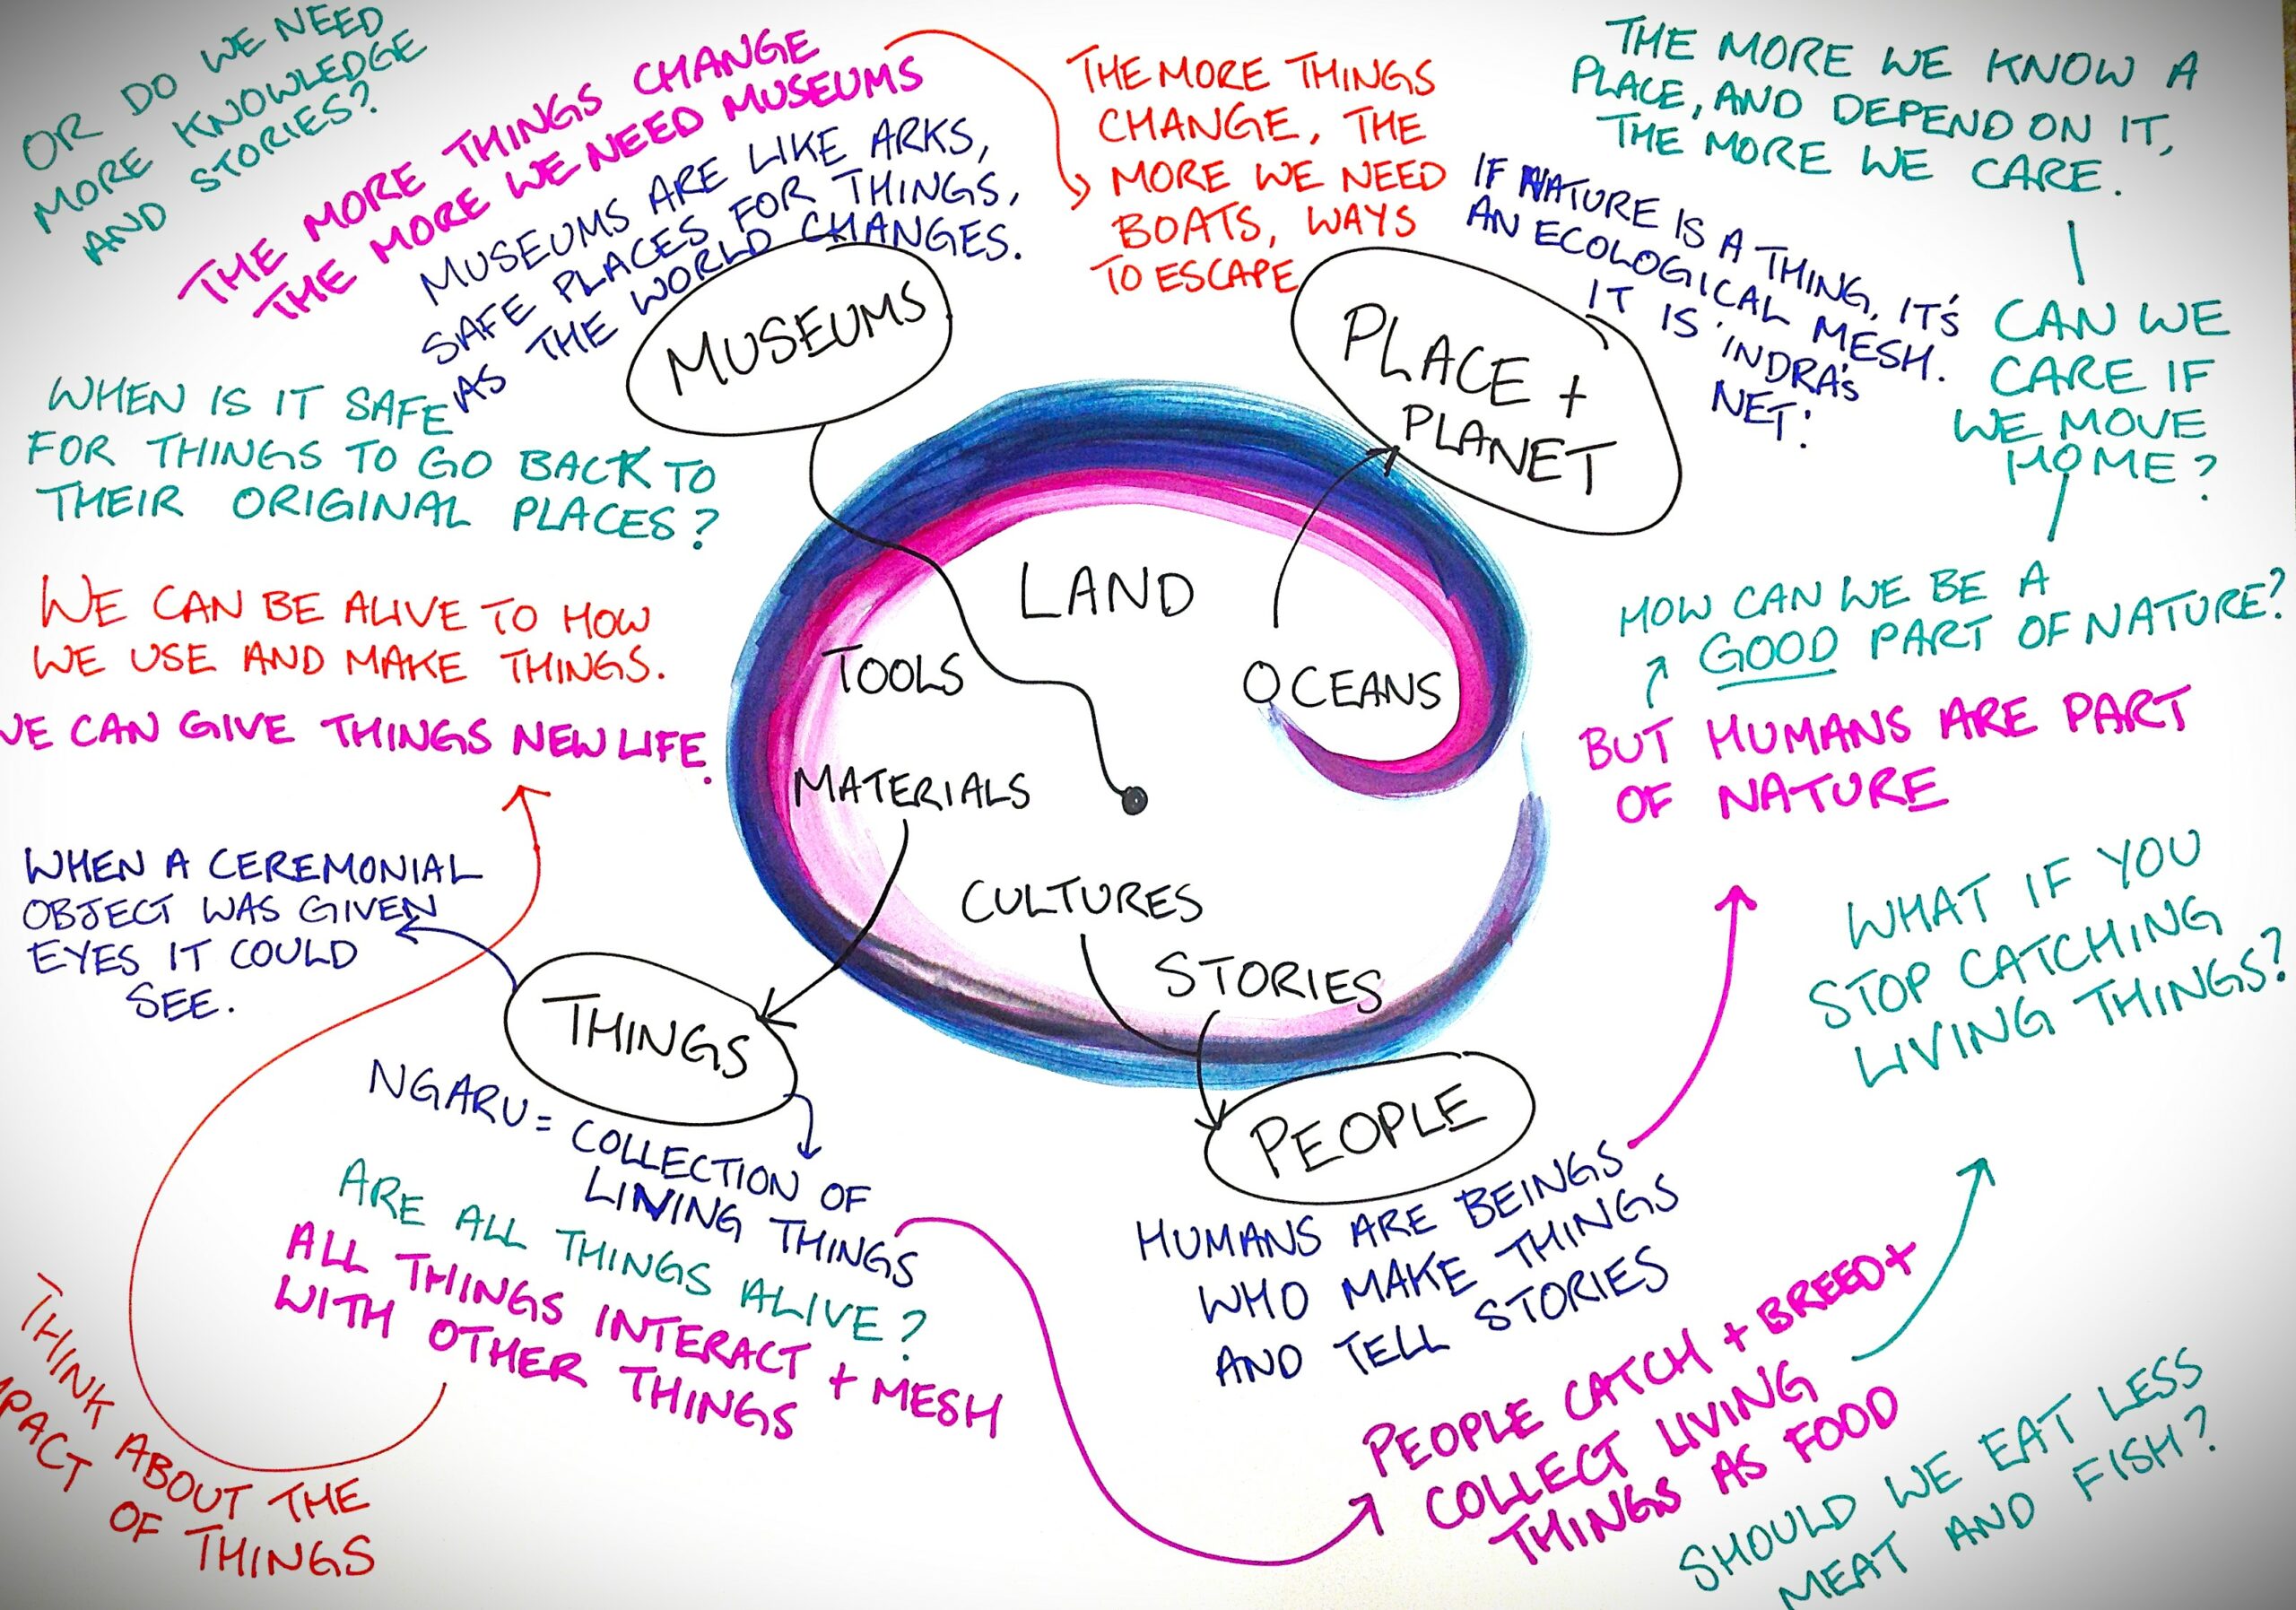 OR DO WE NEED
MORE KNOWLEDGE
AND STORIES?
THE MORE THINGS CHANGE
THE MORE WE NEED MUSEUMS
MUSEUMS ARE LIKE ARKS,
SAFE PLACES FOR THINGS,
AS THE WORLD CHANGES.
THE MORE THINGS
CHANGE, THE
MORE WE NEED
BOATS, WAYS
TO ESCAPE
THE MORE WE KNOW A
PLACE, AND DEPEND ON IT,
THE MORE WE CARE.
IF NATURE IS A THING, IT'S
AN ECOLOGICAL MESH.
IT IS 'INDRA'S
NET'.
CAN WE
CARE IF
WE MOVE
HOME?
HOW CAN WE BE A
GOOD PART OF NATURE?
BUT HUMANS ARE PART
OF NATURE
MUSEUMS
PLACE +
PLANET
WHEN IS IT SAFE
FOR THINGS TO GO BACK TO
THEIR ORIGINAL PLACES?
WE CAN BE ALIVE TO HOW
WE USE AND MAKE THINGS.
WE CAN GIVE THINGS NEW LIFE.
LAND
TOOLS
OCEANS
MATERIALS
CULTURES
STORIES
WHEN A CEREMONIAL
OBJECT WAS GIVEN
EYES IT COULD
SEE.
THINGS
NGARU = COLLECTION OF
LIVING THINGS
ARE ALL THINGS ALIVE?
ALL THINGS INTERACT + MESH
WITH OTHER THINGS
THINK ABOUT THE
OF THINGS
PEOPLE
HUMANS ARE BEINGS
WHO MAKE THINGS
AND TELL STORIES
WHAT IF YOU
STOP CATCHING
LIVING THINGS?
PEOPLE CATCH + BREED +
COLLECT LIVING
THINGS AS FOOD
SHOULD WE EAT LESS
MEAT AND FISH?